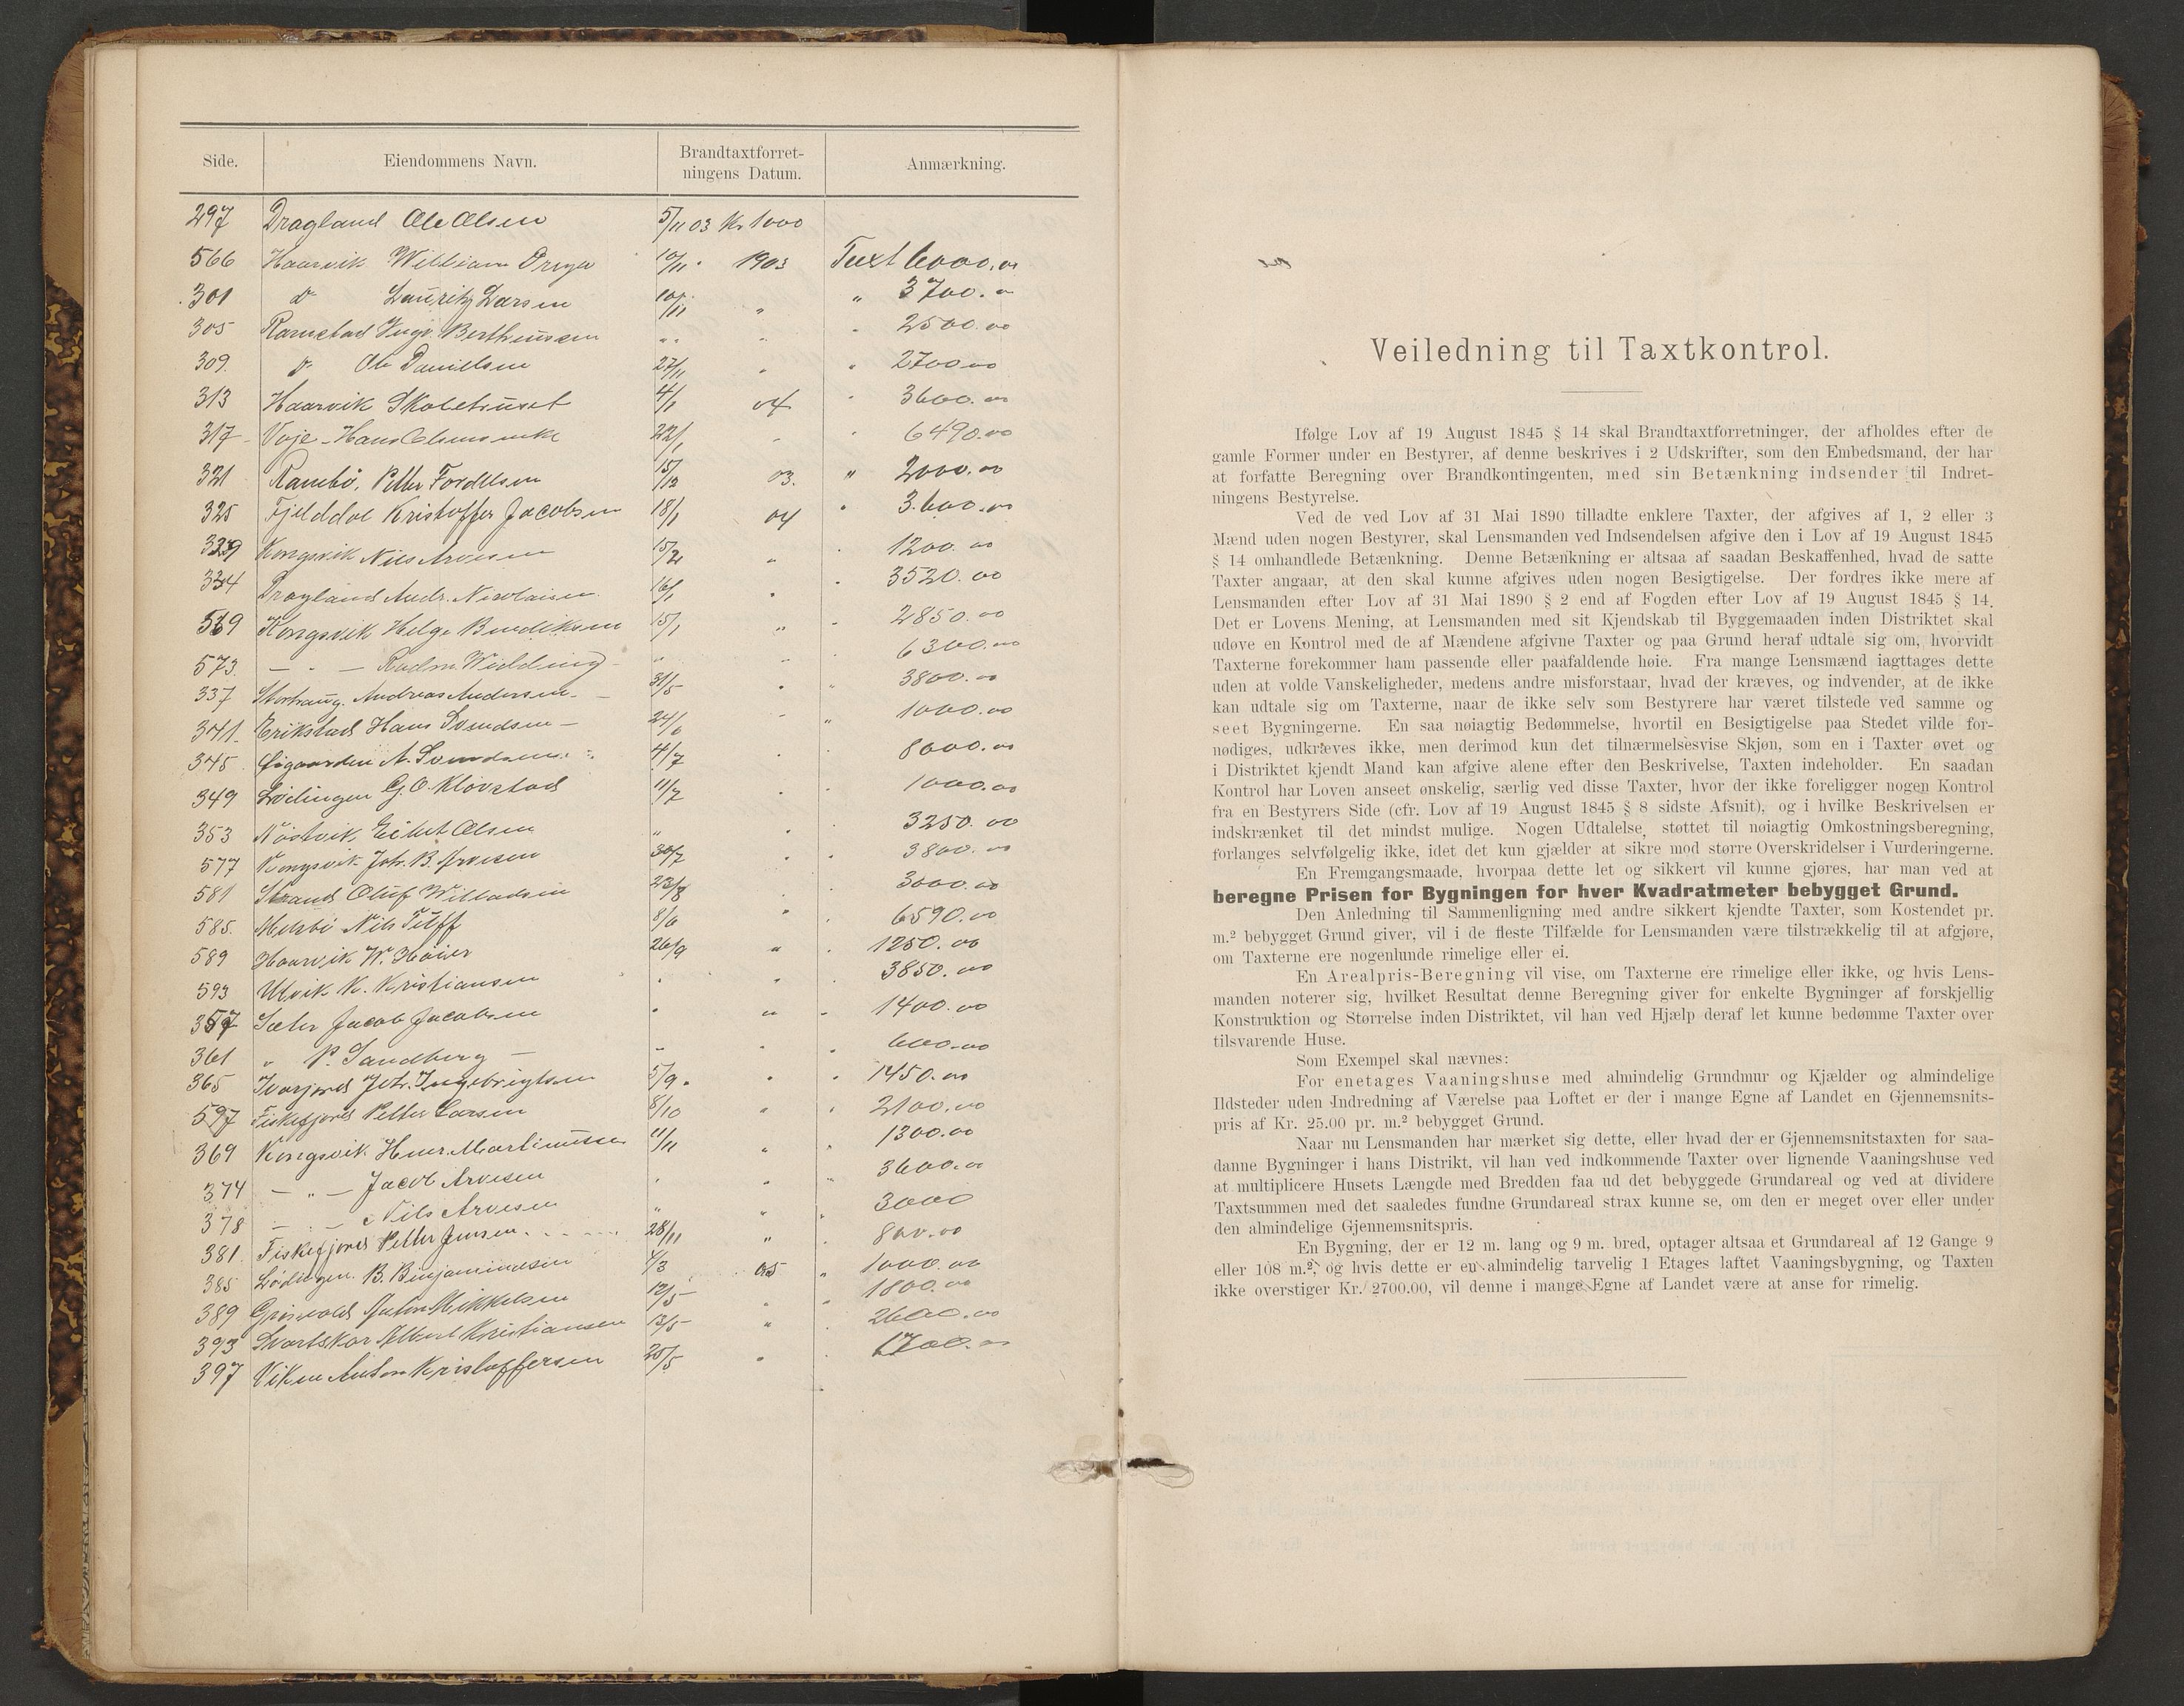 Side. Eiendommens Navn. Brandtaxtforret-
ningens Datum. Anmærkning.
297 Dragland Ole Olsen 5/11 03 Kr 1000
566 Haarvik William Dreyer 10/11 " 1903 Taxt 6000.00
301 do Lauritz Larsen 10/11 " " 3700.00
305 Ramstad Ingv. Bertheussen " " " " 2500.00
309. do Ole Danielsen 27/11 " " 2700.00
313 Haarvik Skolehuset 4/1 04 " 3600.00
317 - Voje - Hans Olsens enke 22/1 " " 6490.00
321 Rambö, Petter Fordelsen 15/12 03. " 2000.00
325 Fjelddal Kristoffer Jacobsen 18/1 04 " 3.600.00
329 Kongsvik Nils Arvesen 15/2 " " 1200.00
334 Dragland Andr. Nicolaisen 16/1 " " 3520.00
569 Kongsvik Helge Bendiksen 15/1 " " 2850.00
573. — " — Rudm. Widding " " 6300.00
337 Storhaug. Andreas Andersen. — 31/5 " " 3800.00
341. Erikstad Hans Svendsen — 24/6 " " 1000.00
345 Øigaarden A. Svendsen. 4/7 " " 8000.00
349 Lödingen G. O. Klovstad 11/7 " " 1000.00
353 Nöstvik, Eilert Olsen " " " 3250.00
577 Kongsvik Joh. B. Arvesen 30/7 " " 3800.00
581 Strand Oluf Willadsen 23/8 " " 3000.00
585. Melsbö Nils Tüff 8/6 " " 6590.00
589 Haarvik W. Höier 26/9 " " 1250.00
593 Ulvik K. Kristiansen " " " 3850.00
357 Sæter Jacob Jacobsen " " " 1400.00
361 " P. Sandberg — " " " 600.00
365 Ivarjord Joh. Ingebrigtsen 5/9. " " 1450.00
597 Fiskefjord Petter Larsen 8/10 " " 2100.00
369 Kongsvik Henr. Martinussen 11/11 " " 1300.00
374 — " — Jacob Arvesen " " " 3600.00
378 — " — Nils Arvesen " " " 3000
381. Fiskefjord Petter Jensen 28/11 " " 800.00
385 Lödingen. B. Benjaminsen 4/3 05 " 1000.00
389 Grisvold Anton Mikkelsen 12/5 " " 1800.00
393 Svartskar Albert Kristiansen 13/5 " " 2600.00
397 Viken Anton Kristoffersen 25/5 " " 1700.00
Veiledning til Taxtkontrol.
Ifølge Lov af 19 August 1845 § 14 skal Brandtaxtforretninger, der afholdes efter de
gamle Former under en Bestyrer, af denne beskrives i 2 Udskrifter, som den Embedsmand, der har
at forfatte Beregning over Brandkontingenten, med sin Betænkning indsender til Indret-
ningens Bestyrelse.
Ved de ved Lov af 31 Mai 1890 tilladte enklere Taxter, der afgives af 1, 2 eller 3
Mænd uden nogen Bestyrer, skal Lensmanden ved Indsendelsen afgive den i Lov af 19 August 1845
§ 14 omhandlede Betænkning. Denne Betænkning er altsaa af saadan Beskaffenhed, hvad de satte
Taxter angaar, at den skal kunne afgives uden nogen Besigtigelse. Der fordres ikke mere af
Lensmanden efter Lov af 31 Mai 1890 § 2 end af Fogden efter Lov af 19 August 1845 § 14.
Det er Lovens Mening, at Lensmanden med sit Kjendskab til Byggemaaden inden Distriktet skal
udøve en Kontrol med de af Mændene afgivne Taxter og paa Grund heraf udtale sig om, hvorvidt
Taxterne forekommer ham passende eller paafaldende høie. Fra mange Lensmænd iagttages dette
uden at volde Vanskeligheder, medens andre misforstaar, hvad der kræves, og indvender, at de ikke
kan udtale sig om Taxterne, naar de ikke selv som Bestyrere har været tilstede ved samme og
seet Bygningerne. En saa nøiagtig Bedømmelse, hvortil en Besigtigelse paa Stedet vilde for-
nødiges, udkræves ikke, men derimod kun det tilnærmelsesvise Skjøn, som en i Taxter øvet og
i Distriktet kjendt Mand kan afgive alene efter den Beskrivelse, Taxten indeholder. En saadan
Kontrol har Loven anseet ønskelig, særlig ved disse Taxter, hvor der ikke foreligger nogen Kontrol
fra en Bestyrers Side (cfr. Lov af 19 August 1845 § 8 sidste Afsnit), og i hvilke Beskrivelsen er
indskrænket til det mindst mulige. Nogen Udtalelse, støttet til nøiagtig Omkostningsberegning,
forlanges selvfølgelig ikke, idet det kun gjælder at sikre mod større Overskridelser i Vurderingerne.
En Fremgangsmaade, hvorpaa dette let og sikkert vil kunne gjøres, har man ved at
beregne Prisen for Bygningen for hver Kvadratmeter bebygget Grund.
Den Anledning til Sammenligning med andre sikkert kjendte Taxter, som Kostendet pr.
m.² bebygget Grund giver, vil i de fleste Tilfælde for Lensmanden være tilstrækkelig til at afgjøre,
om Taxterne ere nogenlunde rimelige eller ei.
En Arealpris-Beregning vil vise, om Taxterne ere rimelige eller ikke, og hvis Lens-
manden noterer sig, hvilket Resultat denne Beregning giver for enkelte Bygninger af forskjellig
Konstruktion og Størrelse inden Distriktet, vil han ved Hjælp deraf let kunne bedømme Taxter over
tilsvarende Huse.
Som Exempel skal nævnes:
For enetages Vaaningshuse med almindelig Grundmur og Kjælder og almindelige
Ildsteder uden Indredning af Værelse paa Loftet er der i mange Egne af Landet en Gjennemsnits-
pris af Kr. 25.00 pr. m.² bebygget Grund.
Naar nu Lensmanden har mærket sig dette, eller hvad der er Gjennemsnitstaxten for saa-
danne Bygninger i hans Distrikt, vil han ved indkommende Taxter over lignende Vaaningshuse ved
at multiplicere Husets Længde med Bredden faa ud det bebyggede Grundareal og ved at dividere
Taxtsummen med det saaledes fundne Grundareal strax kunne se, om den er meget over eller under
den almindelige Gjennemsnitspris.
En Bygning, der er 12 m. lang og 9 m. bred, optager altsaa et Grundareal af 12 Gange 9
eller 108 m.², og hvis dette er en almindelig tarvelig 1 Etages laftet Vaaningsbygning, og Taxten
ikke overstiger Kr. 2700.00, vil denne i mange Egne af Landet være at anse for rimelig.